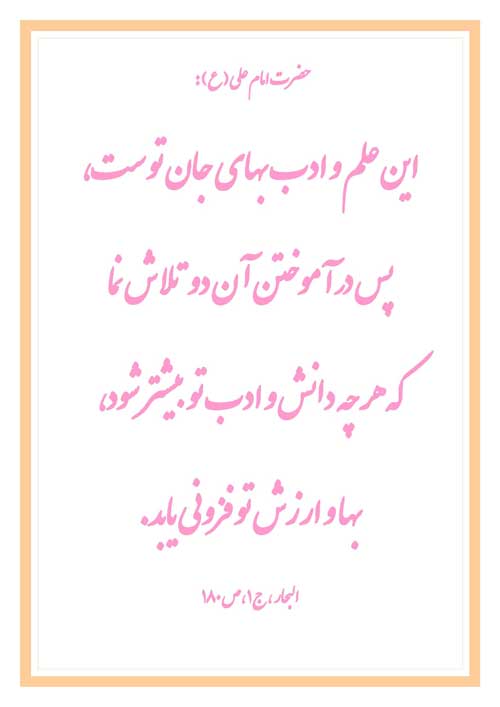 حضرت امام علی (ع):
این علم و ادب بهای جان توست،
پس در آموختن آن دو تلاش نما
که هر چه دانش و ادب تو بیشتر شود،
بها و ارزش تو فزونی یابد.
البحار، ج۱، ص۱۸۰